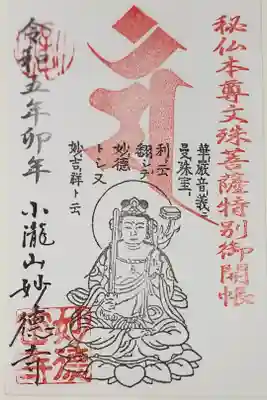 秘仏本尊文殊菩薩特別御開帳
華厳音義ニ
曼殊室
利ト云
翻シテ
妙徳
トシ又
妙吉祥ト云
令和五年卯年
小瀧山妙徳寺